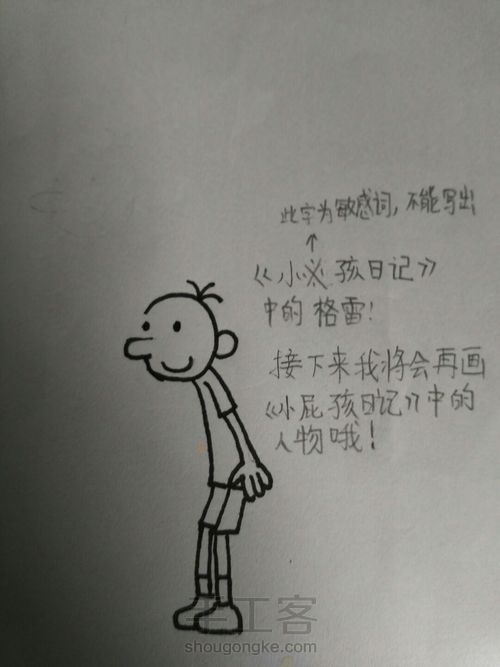 此字为敏感词，不能写出
↑
《小※孩日记》
中的格雷！
接下来我将会再画
《小屁孩日记》中的
人物哦！
手工客
shougongke.com